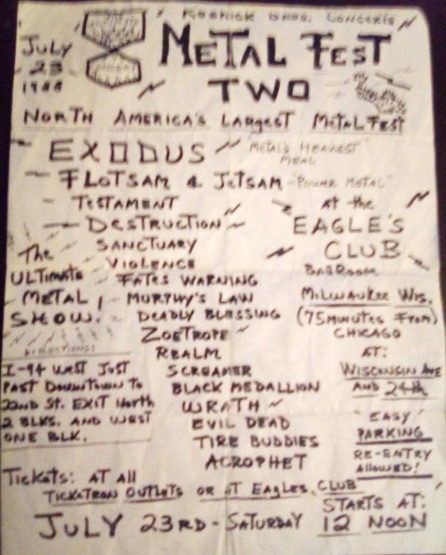 JULY
23
1988
BROS. CONCERTS
METAL FEST
TWO
NORTH AMERICA'S LARGEST METALFEST
EXODUS
METAL'S HEAVIEST
MEAL
FLOTSAM & JETSAM "POWER METAL"
TESTAMENT
DESTRUCTION
SANCTUARY
VIOLENCE
FATES WARNING
MURPHY'S LAW
DEADLY BLESSING
ZOETROPE
REALM
SCREAMER
BLACK MEDALLION
WRATH
EVIL DEAD
TIRE BUDDIES
ACROPHET
The
ULTIMATE
METAL
SHOW!
AT the
EAGLE'S
CLUB
BALLROOM
MILWAUKEE WIS.
(75 MINUTES FROM)
CHICAGO
AT:
WISCONSIN AVE
AND 24th
"EASY"
PARKING
RE-ENTRY
ALLOWED!
DIRECTIONS:
I-94 WEST JUST
PAST DOWNTOWN TO
22ND ST. EXIT NORTH
2 BLKS. AND WEST
ONE BLK.
TICKETS: AT ALL
TICKETRON OUTLETS OR AT EAGLES CLUB
STARTS AT:
JULY 23RD - SATURDAY 12 NOON